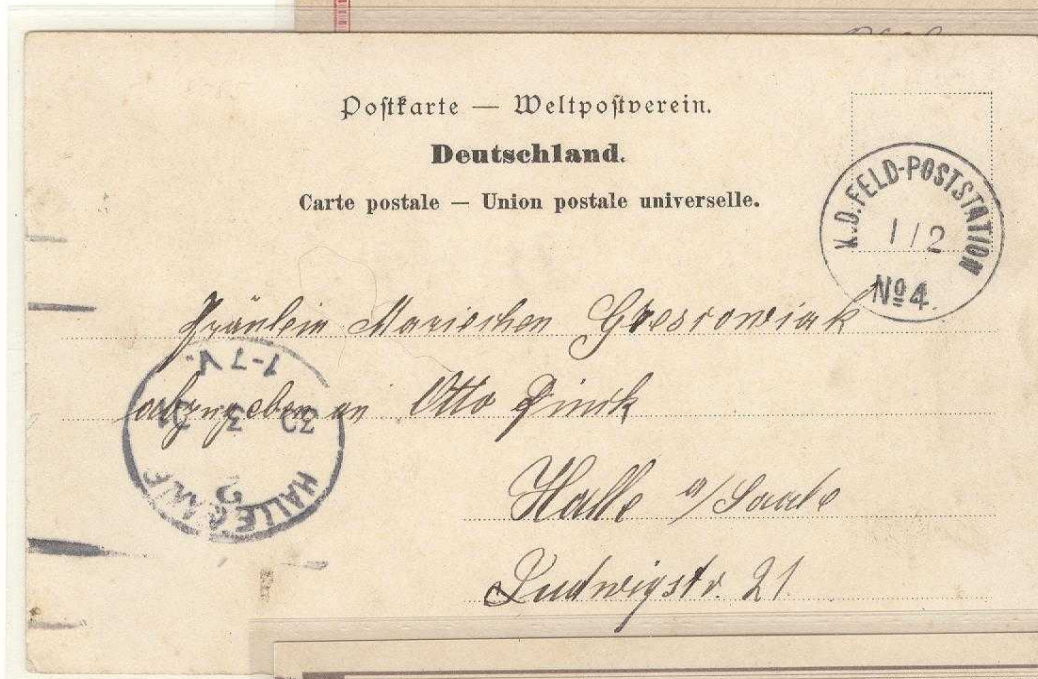 Postkarte — Weltpostverein.
Deutschland.
Carte postale — Union postale universelle.
K.D. FELD-POSTSTATION
1/2
No 4.
Fräulein Mariechen
abzugeben an Otto
Halle a/Saale
Ludwigstr. 21
1-7 V.
3
HALLE (SAALE
2